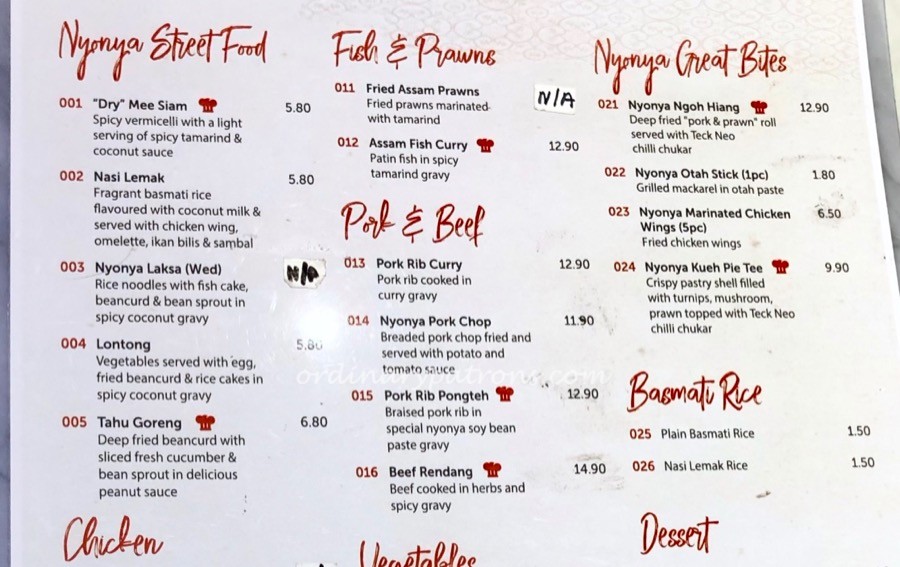 Nyonya Street Food
001 "Dry" Mee Siam 5.80
Spicy vermicelli with a light
serving of spicy tamarind &
coconut sauce
002 Nasi Lemak 5.80
Fragrant basmati rice
flavoured with coconut milk &
served with chicken wing,
omelette, ikan bilis & sambal
003 Nyonya Laksa (Wed) N/A
Rice noodles with fish cake,
beancurd & bean sprout in
spicy coconut gravy
004 Lontong 5.80
Vegetables served with egg,
fried beancurd & rice cakes in
spicy coconut gravy
005 Tahu Goreng 6.80
Deep fried beancurd with
sliced fresh cucumber &
bean sprout in delicious
peanut sauce
Chicken
Fish & Prawns
011 Fried Assam Prawns N/A
Fried prawns marinated
with tamarind
012 Assam Fish Curry 12.90
Patin fish in spicy
tamarind gravy
Pork & Beef
013 Pork Rib Curry 12.90
Pork rib cooked in
curry gravy
014 Nyonya Pork Chop 11.90
Breaded pork chop fried and
served with potato and
tomato sauce
ordinarypatrons.com
015 Pork Rib Pongteh 12.90
Braised pork rib in
special nyonya soy bean
paste gravy
016 Beef Rendang 14.90
Beef cooked in herbs and
spicy gravy
Vegetables
Nyonya Great Bites
021 Nyonya Ngoh Hiang 12.90
Deep fried "pork & prawn" roll
served with Teck Neo
chilli chukar
022 Nyonya Otah Stick (1pc) 1.80
Grilled mackarel in otah paste
023 Nyonya Marinated Chicken 6.50
Wings (5pc)
Fried chicken wings
024 Nyonya Kueh Pie Tee 9.90
Crispy pastry shell filled
with turnips, mushroom,
prawn topped with Teck Neo
chilli chukar
Basmati Rice
025 Plain Basmati Rice 1.50
026 Nasi Lemak Rice 1.50
Dessert